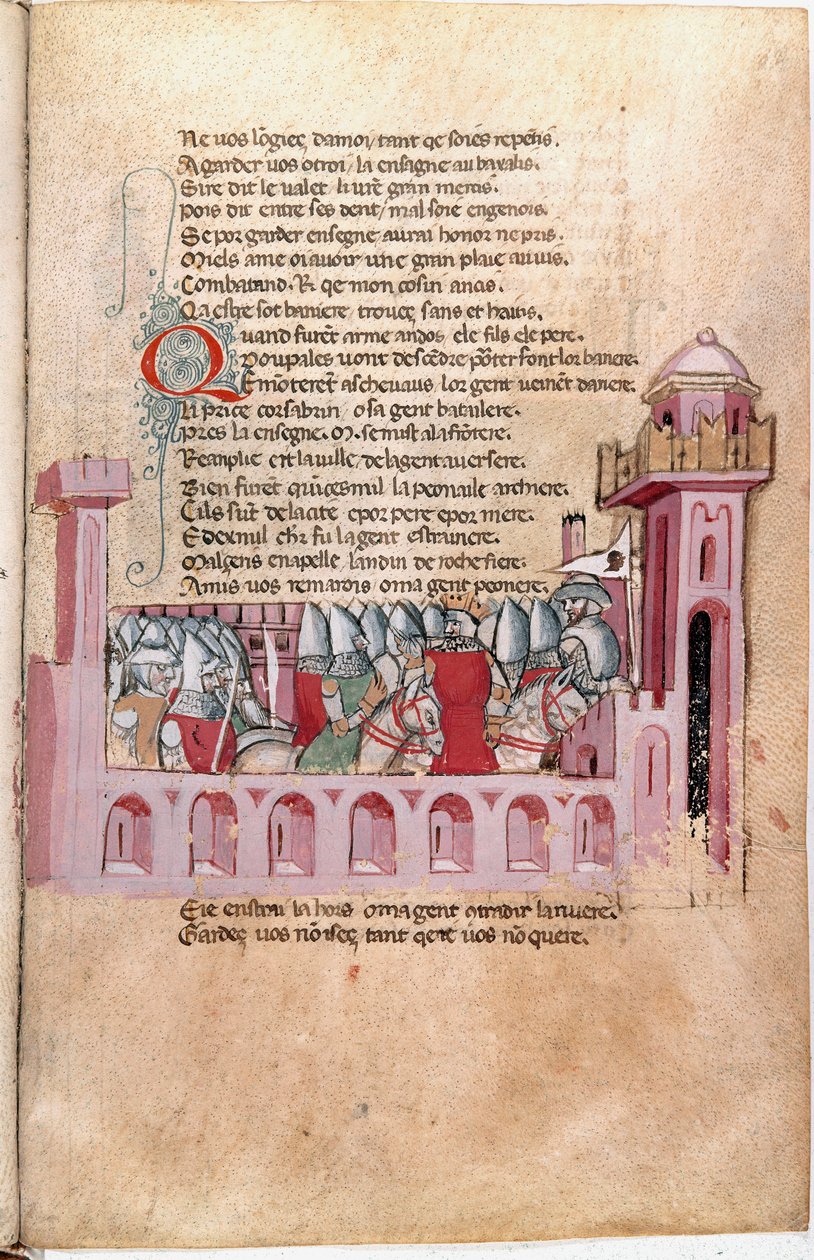 Ne vos lōgieç damoi / tant qe soiés repētis.
A garder vos otroi / la ensagne au baralis.
Sire dit le valet / li vr̄e gran mercis.
Pois dit entre ses dent / mal soie engenois.
Se por garder ensegne aurai honor ne pris.
Miels ame oi avoir une gran plaie au vis.
Combatand. R. qe mon cosin ancis.
Qa estre sot baniere troueç sans et haitis.
Quand furēt arme andos ele fils ele pere.
Dou pales uont desc̄edre p̄oter font lor baniere.
E mōterēt as cheuaus / lor gent ueinēt dariere.
Li price corsabrin / o sa gent batailere.
Pres la ensegne. M. se mist a la frōtere.
Reanplie ert la uille / de la gent auersere.
Bien furēt quīcesmil la peonaile archiere.
Cils sūt de la cité e por pere e por mere.
E dexmil ch̄r fu la gent estraniere.
Malçeris en apelle / landin de roche fiere.
Amis uos remarois o ma gent peonere.
E ie enstrai la hors o ma gent 9tradir la riuere.
Gardeç uos nō iseç / tant qe ie uos nō quere.